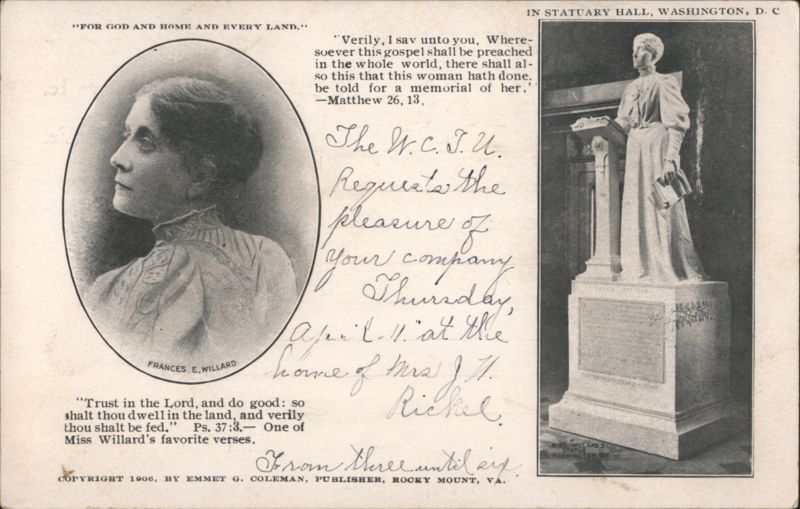 "FOR GOD AND HOME AND EVERY LAND."
IN STATUARY HALL, WASHINGTON, D. C
"Verily, I say unto you, Where-
soever this gospel shall be preached
in the whole world, there shall al-
so this that this woman hath done,
be told for a memorial of her."
—Matthew 26, 13.
The W. C. T. U.
Requests the
pleasure of
Your company
Thursday,
April 11" at the
home of Mrs J. H.
Rickel.
From three until six
FRANCES E. WILLARD
"Trust in the Lord, and do good: so
shalt thou dwell in the land, and verily
thou shalt be fed." Ps. 37:3.— One of
Miss Willard's favorite verses.
COPYRIGHT 1906, BY EMMET G. COLEMAN, PUBLISHER, ROCKY MOUNT, VA.
MISS WILLARD'S
STATUE
WASHINGTON D.C.